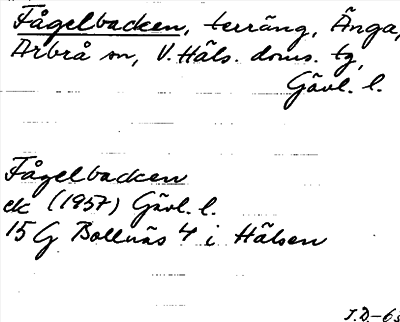 Fågelbacken, terräng, Änga,
Arbrå sn, V. Häls. doms. tg,
Gävl. l.
Fågelbacken
ek (1957) Gävl. l.
15 G Bollnäs 4 i Hälsen
J.D-63